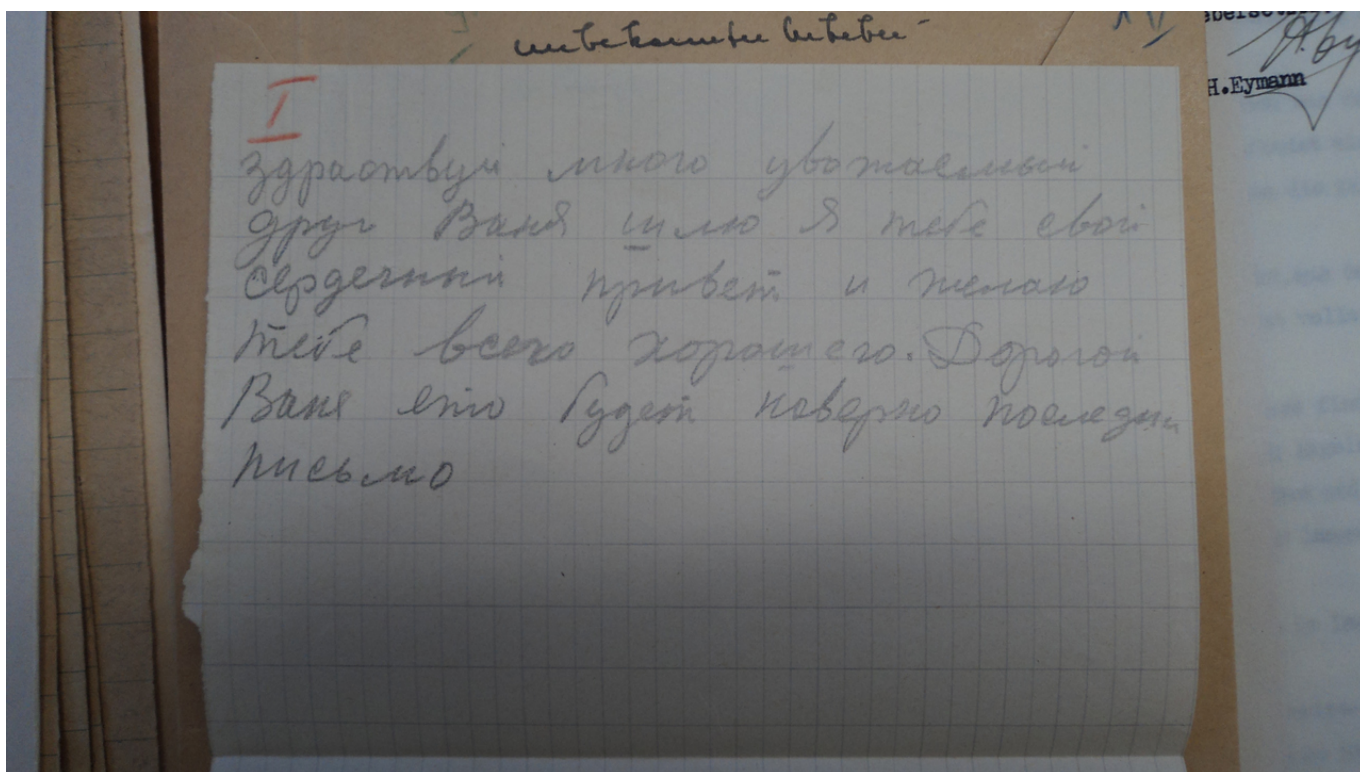 I
здраствуй много уважаемый
друг Ваня шлю Я тебе свой
сердечный привет и желаю
тебе всего хорошего. Дорогой
Ваня ето будет наверно последни
письмо
H.Eymann